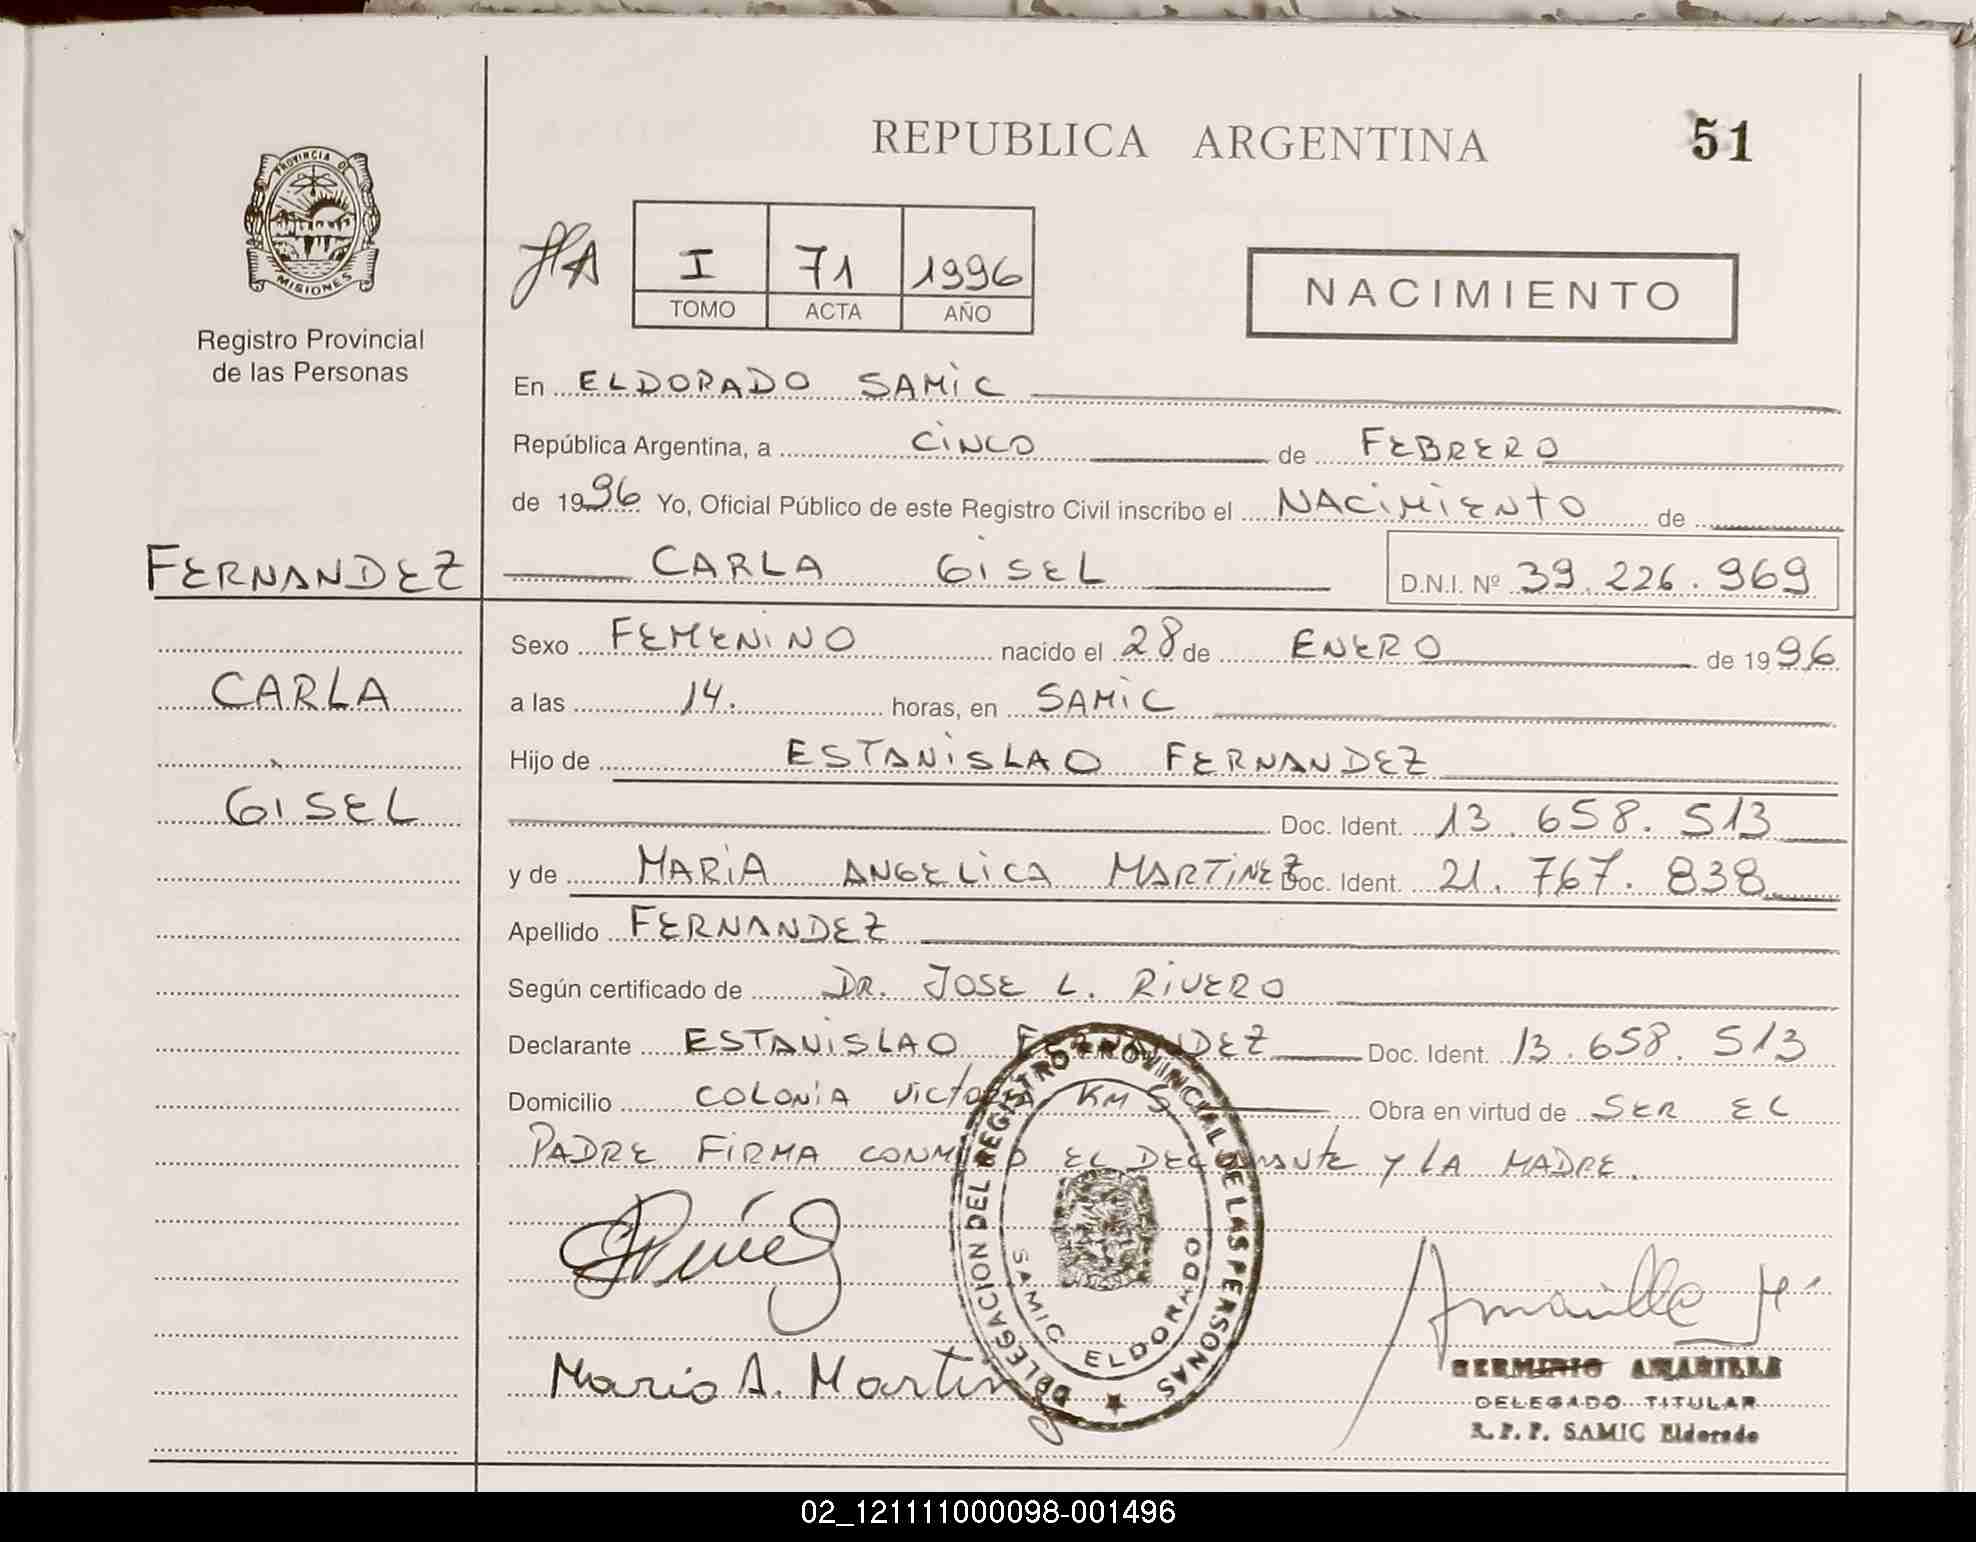 REPUBLICA ARGENTINA
51
PROVINCIA DE
MISIONES
Registro Provincial
de las Personas
I 71 1996
TOMO ACTA AÑO
NACIMIENTO
En ELDORADO SAMIC
República Argentina, a CINCO de FEBRERO
de 1996 Yo, Oficial Público de este Registro Civil inscribo el NACIMIENTO de
FERNANDEZ
CARLA GISEL D.N.I. Nº 39.226.969
Sexo FEMENINO nacido el 28 de ENERO de 1996
CARLA
a las 14. horas, en SAMIC
Hijo de ESTANISLAO FERNANDEZ
GISEL
Doc. Ident. 13.658.513
y de MARIA ANGELICA MARTINEZ Doc. Ident. 21.767.838
Apellido FERNANDEZ
Según certificado de DR. JOSE L. RIVERO
Declarante ESTANISLAO FERNANDEZ Doc. Ident. 13.658.513
Domicilio COLONIA VICTORIA KM 5 Obra en virtud de SER EL
PADRE FIRMA CONMIGO EL DECLARANTE Y LA MADRE.
DELEGACION DEL REGISTRO PROVINCIAL DE LAS PERSONAS
SAMIC ELDORADO
Amarilla H
Maria A. Martinez
HERMINIO AMARILLA
DELEGADO TITULAR
R.P.P. SAMIC Eldorado
02_121111000098-001496